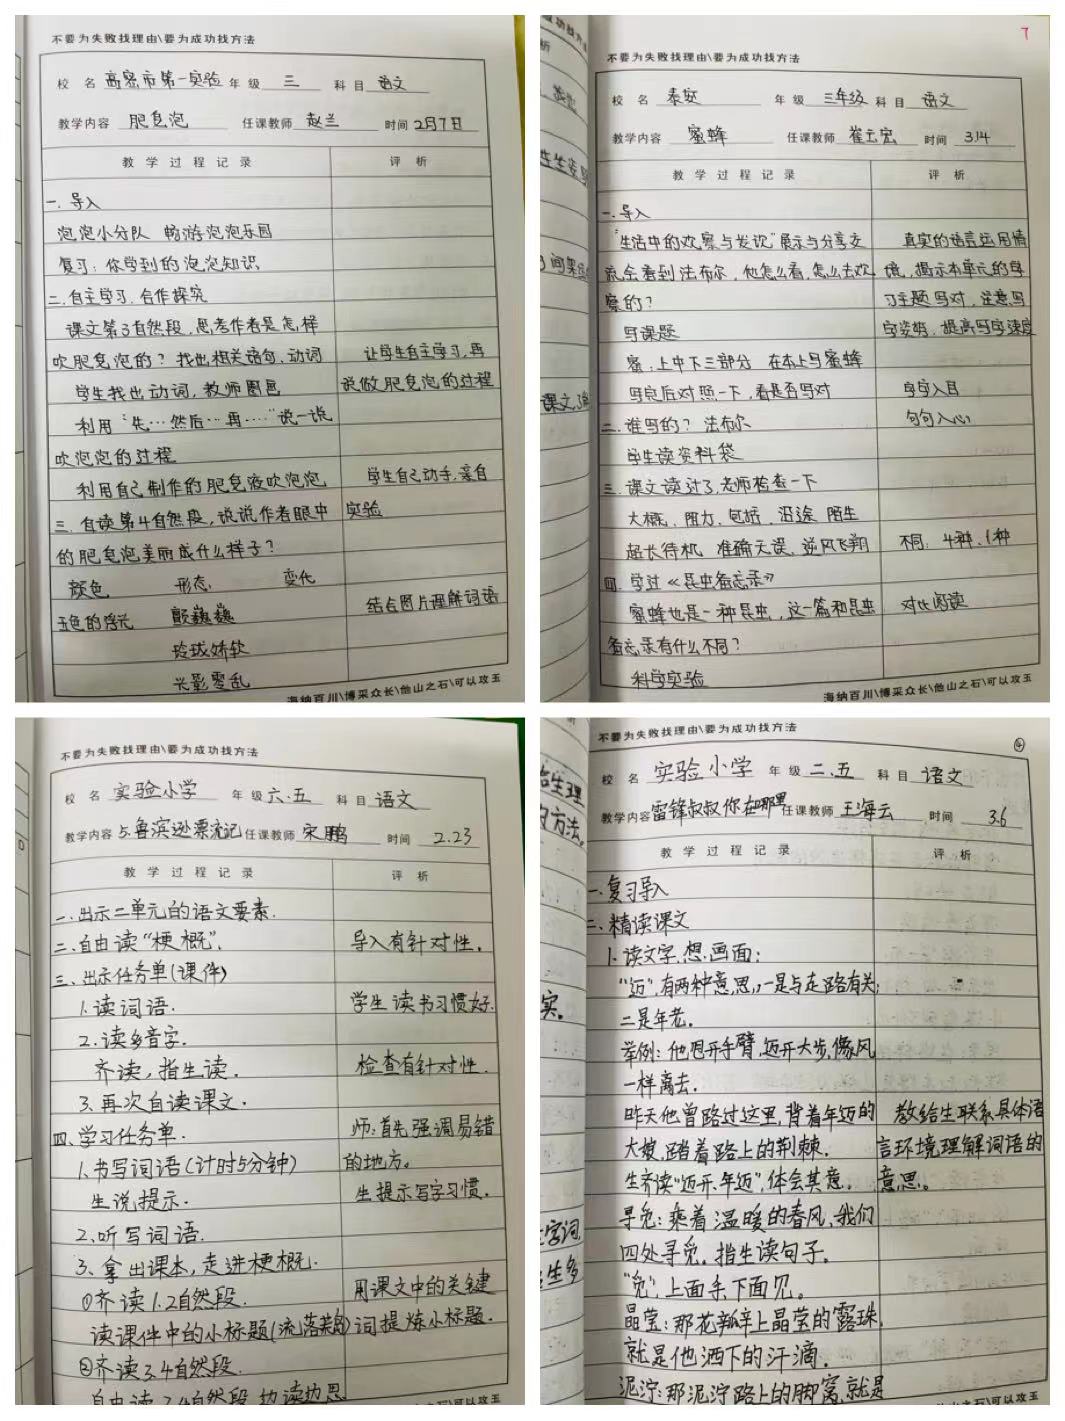 不要为失败找理由\要为成功找方法
校 名 高密市第一实验 年 级 三 科 目 语文
教学内容 肥皂泡 任课教师 赵兰 时间 2月7日
教 学 过 程 记 录 评 析
一. 导入
泡泡小分队 畅游泡泡乐园
复习: 你学到的泡泡知识
二. 自主学习. 合作探究
课文第3自然段, 思考作者是怎样
吹肥皂泡的? 找出相关语句. 动词 让学生自主学习, 再
学生找出动词, 教师圈画 说做肥皂泡的过程
利用“先…然后…再……”说一说
吹泡泡的过程
利用自己制作的肥皂液吹泡泡 学生自己动手. 亲自
三. 自读第4自然段, 说说作者眼中 实验
的肥皂泡美丽成什么样子?
颜色 形态 变化
五色的浮光 颤巍巍 结合图片理解词语
玲珑娇软
光影零乱
海纳百川\博采众长\他山之石\可以攻玉
7
不要为失败找理由\要为成功找方法
校 名 泰安 年 级 三年级 科 目 语文
教学内容 蜜蜂 任课教师 崔立宏 时间 3.14
教 学 过 程 记 录 评 析
一. 导入
“生活中的观察与发现”展示与分享交 真实的语言运用情
流会看到法布尔, 他怎么看. 怎么去观 境, 揭示本单元的学
察的? 习主题 写对, 注意写
写课题 字姿势, 提高写字速度
蜜: 上中下三部分 在本上写蜜蜂
写完后对照一下, 看是否写对 字字入目
二. 谁写的? 法布尔 句句入心
学生读资料袋
三. 课文读过了, 老师检查一下
大概. 阻力. 包括. 沿途 陌生
超长待机 准确无误. 逆风飞翔 不同: 4种、1种
四. 学过《昆虫备忘录》
蜜蜂也是一种昆虫, 这一篇和昆虫 对比阅读
备忘录有什么不同?
科学实验
海纳百川\博采众长\他山之石\可以攻玉
不要为失败找理由\要为成功找方法
校 名 实验小学 年 级 六.五 科 目 语文
教学内容 鲁滨逊漂流记 任课教师 宋鹏 时间 2.23
教 学 过 程 记 录 评 析
一. 出示二单元的语文要素.
二. 自由读“梗概”. 导入有针对性.
三、出示任务单(课件)
1. 读词语. 学生读书习惯好.
2. 读多音字.
齐读, 指生读. 检查有针对性.
3. 再次自读课文.
四、学习任务单. 师: 首先强调易错
1. 书写词语(计时5分钟) 的地方.
生说提示. 生提示写字习惯.
2. 听写词语.
3、拿出课本, 走进梗概.
①齐读1.2自然段. 用课文中的关键
读课件中的小标题(流落荒岛) 词提炼小标题.
②齐读3.4自然段.
④
不要为失败找理由\要为成功找方法
校 名 实验小学 年 级 二.五 科 目 语文
教学内容 雷锋叔叔你在哪里 任课教师 王海云 时间 3.6
教 学 过 程 记 录 评 析
一. 复习导入
二、精读课文
1. 读文字. 想. 画面:
“迈”. 有两种意思, 一是与走路有关;
二是年老.
举例: 他甩开手臂, 迈开大步, 像风
一样离去.
昨天他曾路过这里, 背着年迈的 教给生联系具体语
大娘, 踏着路上的荆棘. 言环境理解词语的
生齐读“迈开、年迈”, 体会其意. 意思。
寻觅: 乘着温暖的春风, 我们
四处寻觅. 指生读句子.
“觅”上面手, 下面见。
晶莹: 那花瓣上晶莹的露珠,
就是他洒下的汗滴.
泥泞: 那泥泞路上的脚窝, 就是